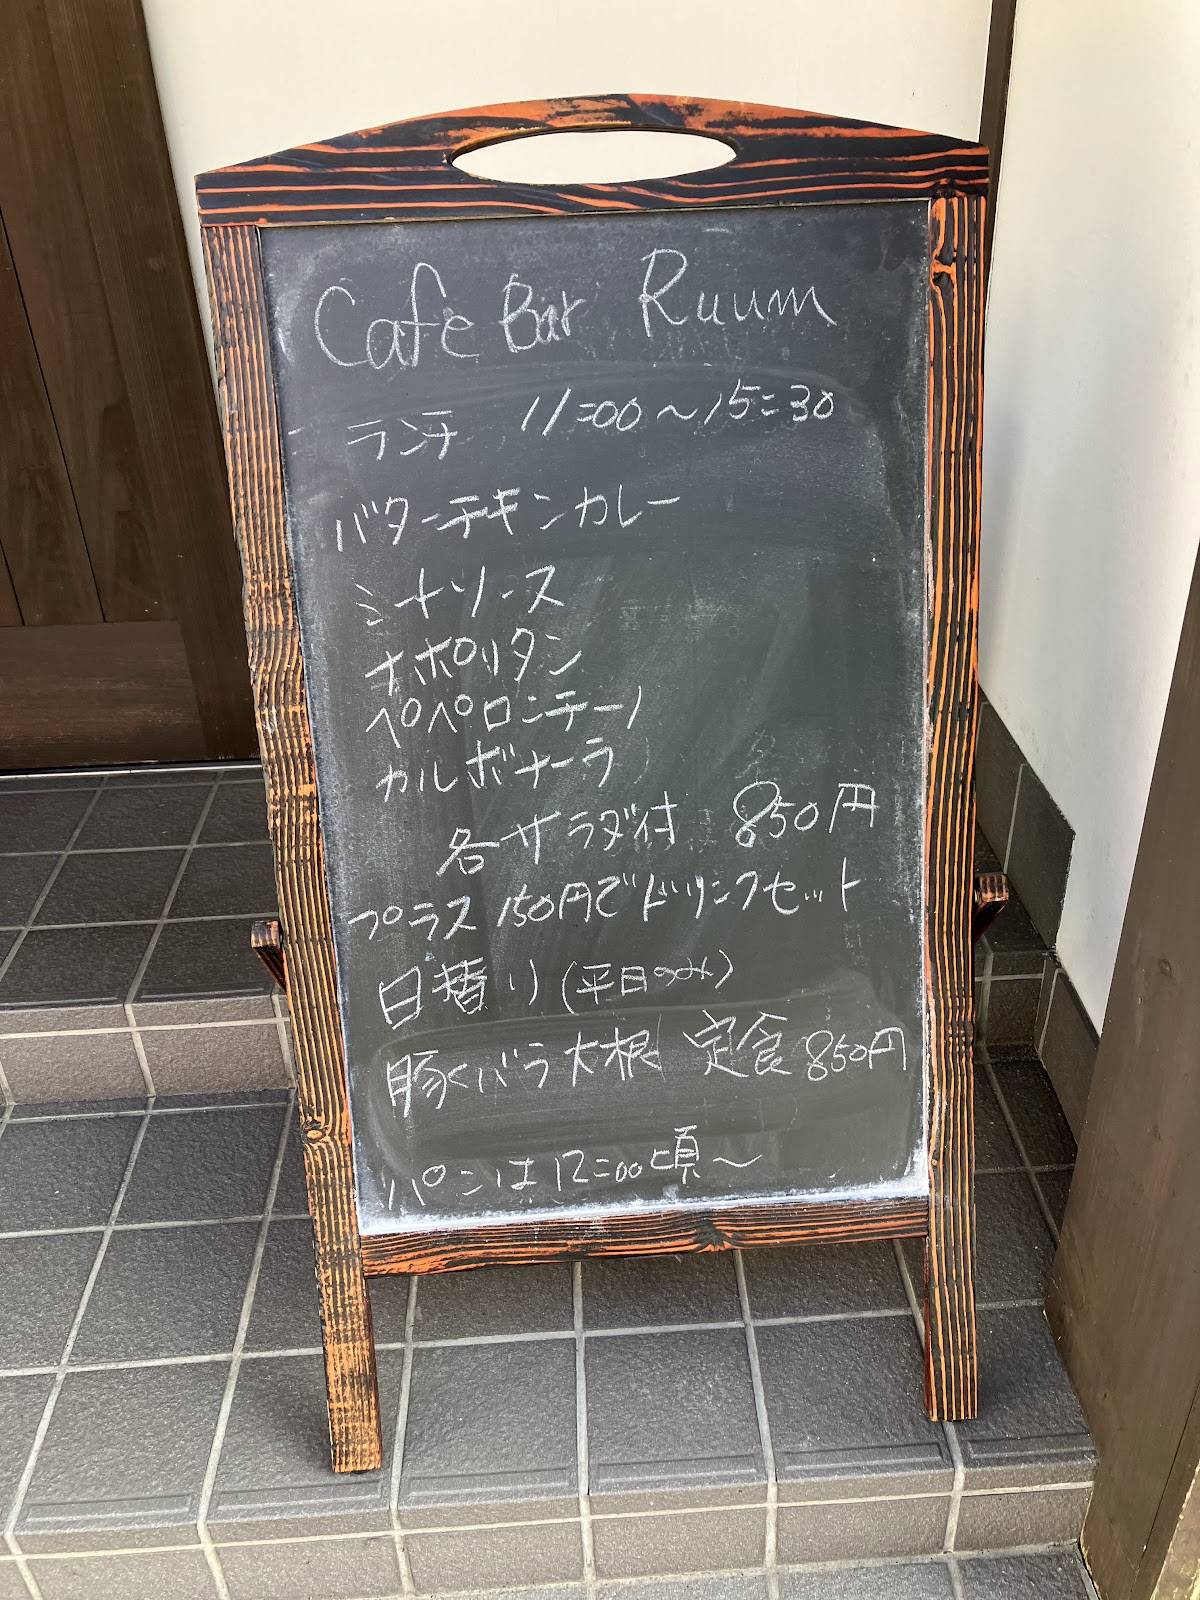 Cafe Bar Ruum
ランチ 11:00〜15:30
バターチキンカレー
ミートソース
ナポリタン
ペペロンチーノ
カルボナーラ
各サラダ付 850円
プラス150円でドリンクセット
日替り(平日のみ)
豚バラ大根 定食 850円
パンは12:00頃〜